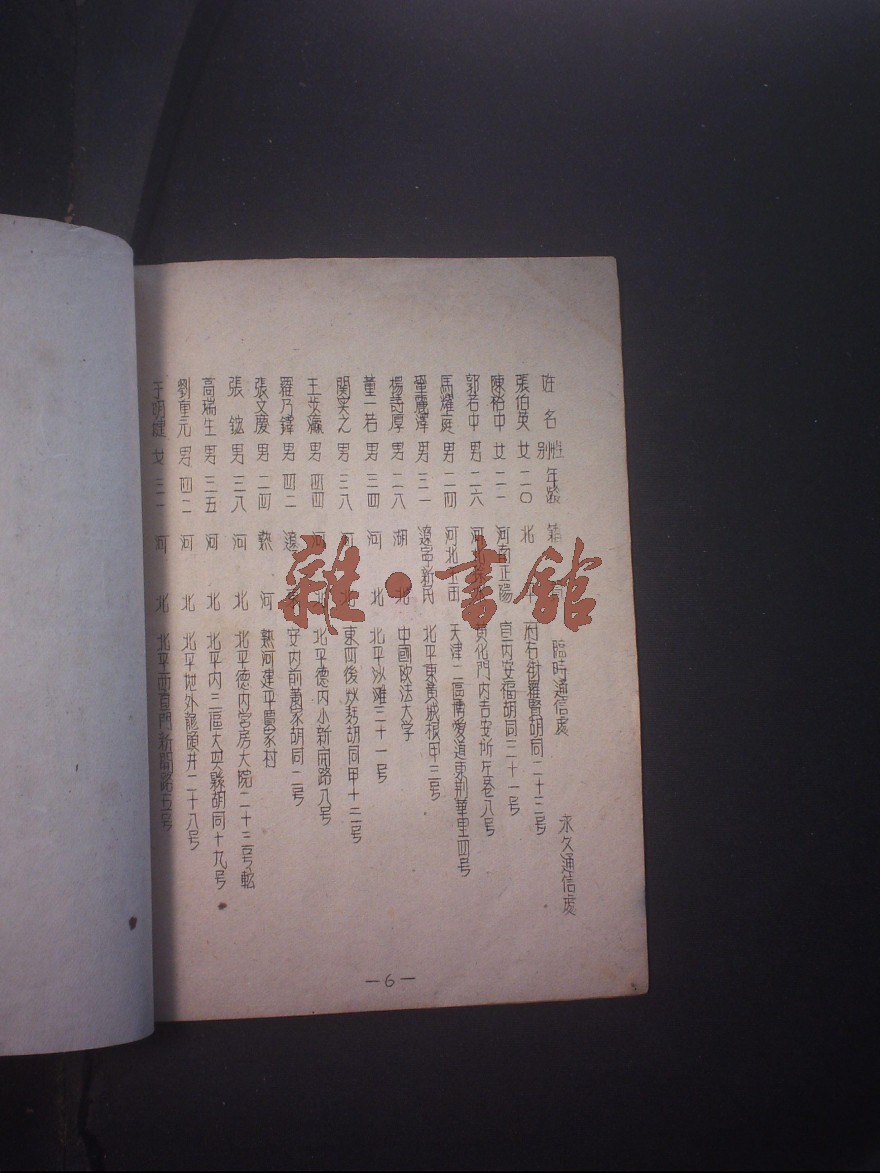 姓名 性別 年齡 籍 臨時通信處 永久通信處
張伯英 女 二〇 北 府右街羅賢胡同二十三号
陳裕中 女 二一 河南正陽 宣內安福胡同三十一号
郭若中 男 二六 河北 黃化門內吉安所左巷八号
馬耀庭 男 二四 河北玉田 天津二區南愛道東荆華里四号
麗澤 男 三一 遼寧新民 北平東黃城根甲三号
楊詩厚 男 二八 湖北 中國欧法大学
董一若 男 三四 河北 北平沙滩三十一号
関笑之 男 三八 河北 東四後炒麪胡同甲十三号
王女瀛 男 四四 河北 北平德內小新開路八号
羅乃鐸 男 四二 遼 安內前蕭家胡同二号
張文慶 男 二四 熱河 熱河建平賈家村
張鋐 男 三八 河北 北平德內官房大院二十三号転
高瑞生 男 三五 河北 北平內三區大興縣胡同十九号
劉重元 男 四二 河北 北平地外龍頭井二十八号
于明 女 三一 河北 北平西直門新開路五号
—6—
雜·書館